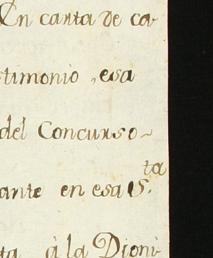 En carta de ca-
timonio, esa
del Concurso~
ante en esa S.ta
ta à la Dioni-